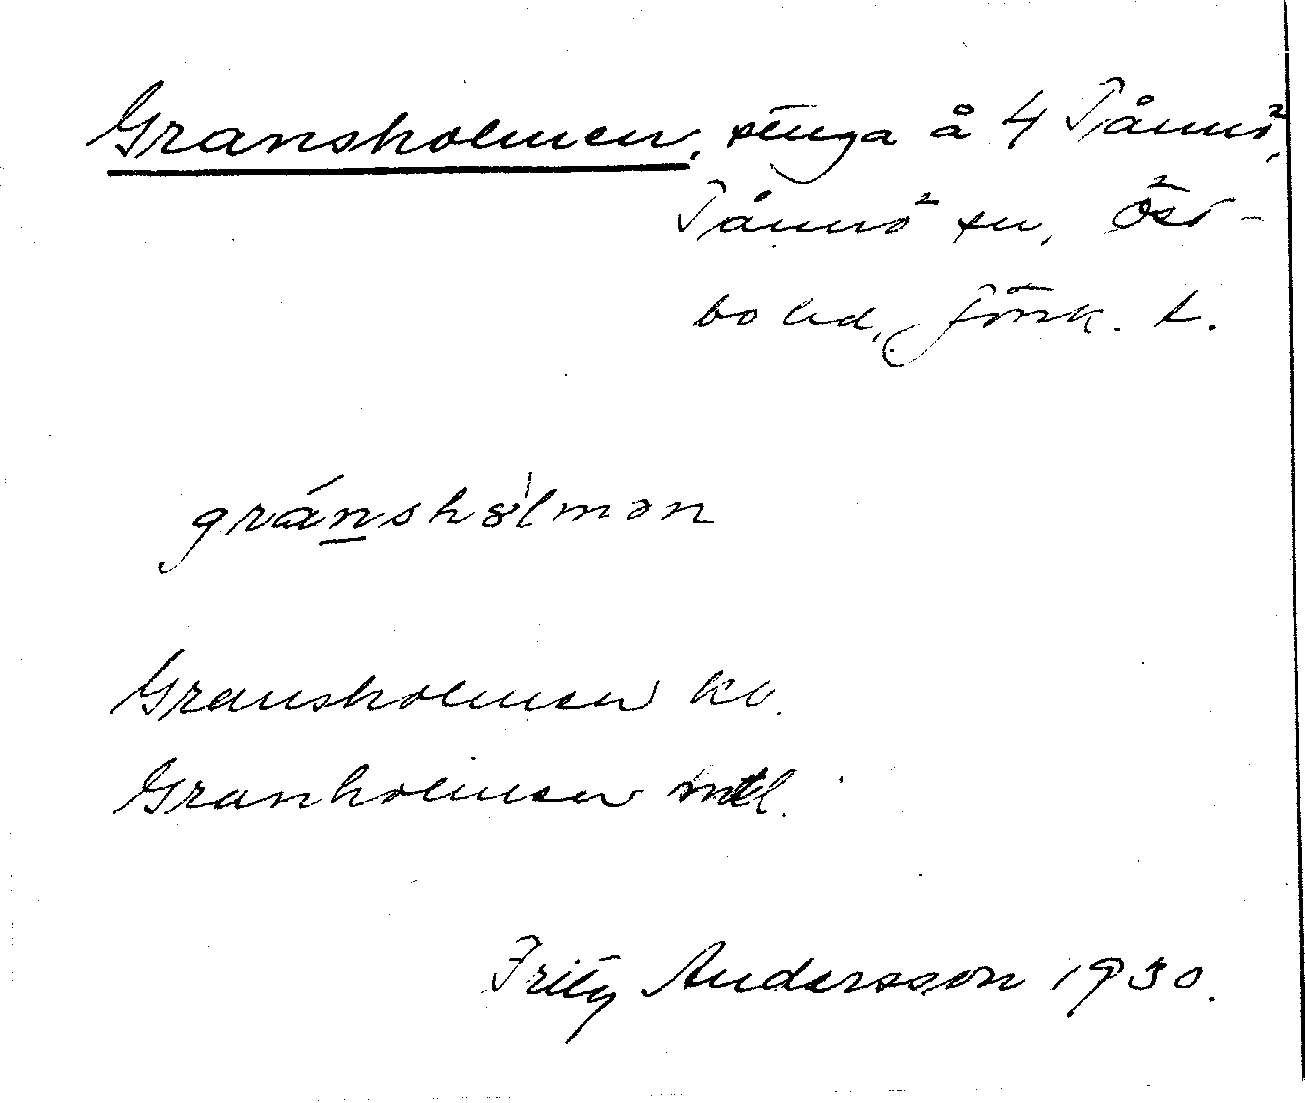 Gransholmen, stuga å 4 Tånnö,
Tånnö sn, Öst-
bo hd, Jönk. l.
gránshòlmən
Gransholmen kb.
Granholmen mtl.
Fritz Andersson 1930.